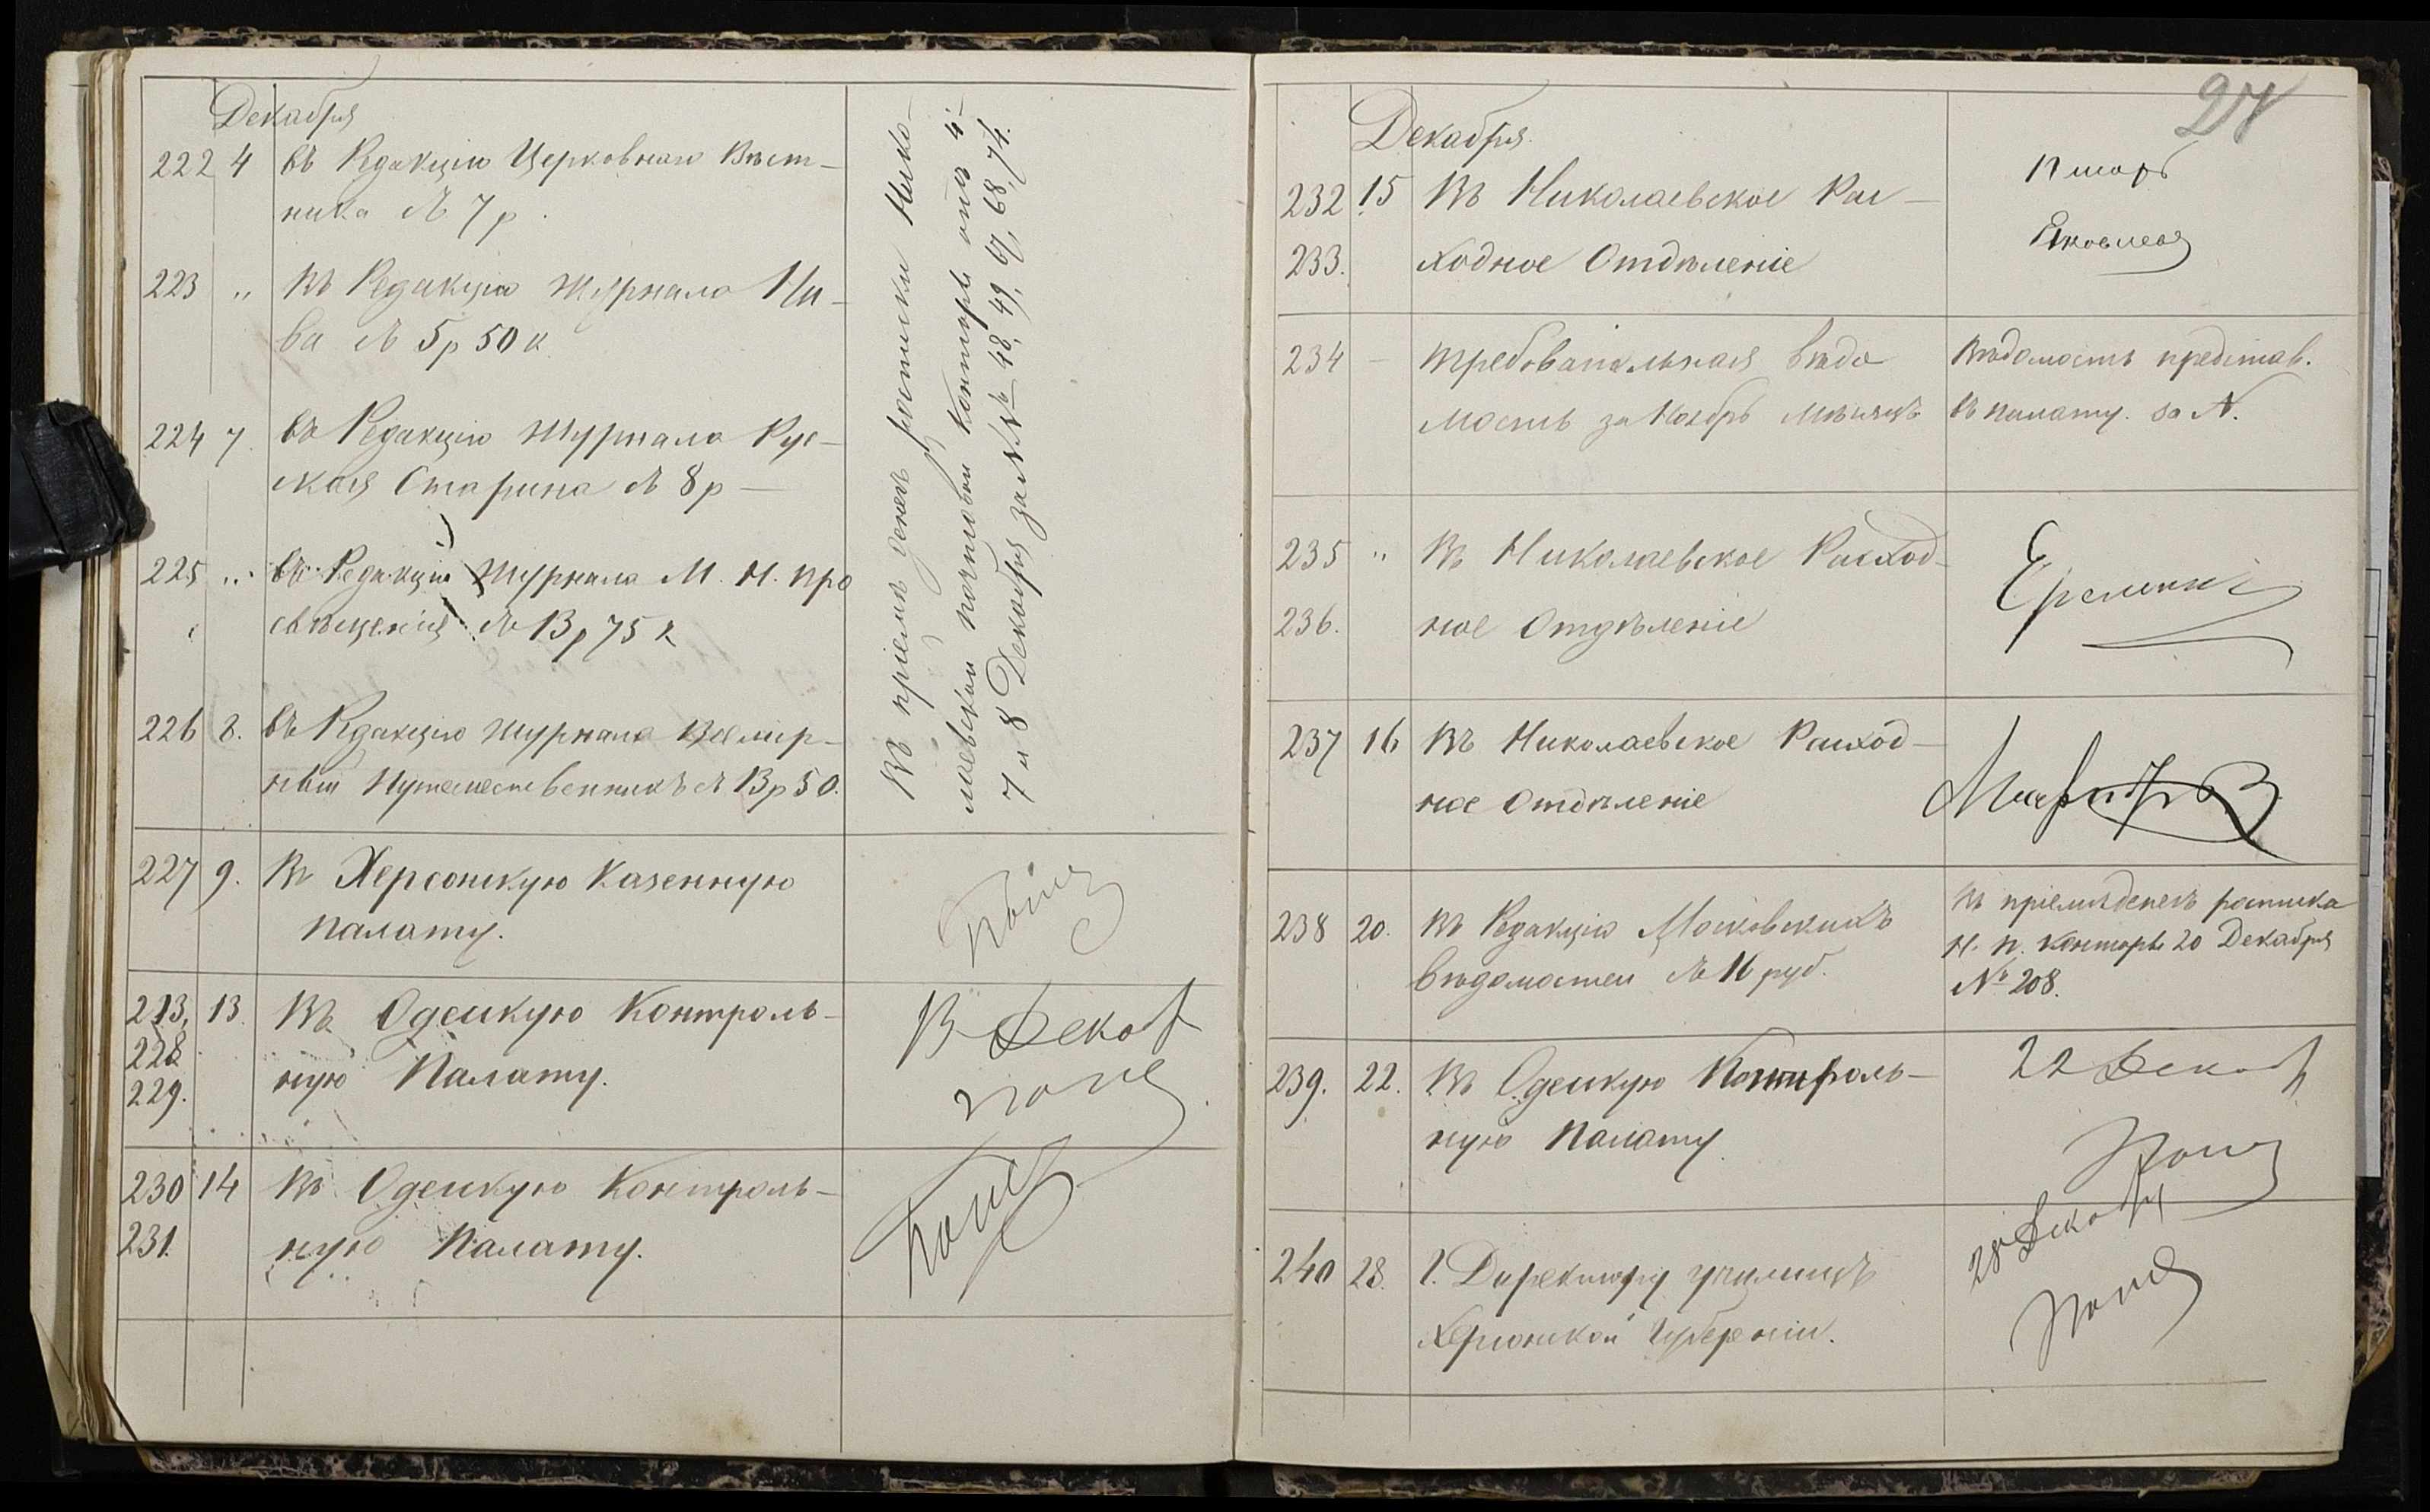 Декабря
222 4 въ Редакцію Церковнаго Вѣст-
ника съ 7 р.
223 „ Въ Редакцію журнала Ни-
ва съ 5 р 50 к
224 7. въ Редакцію журнала Рус-
ская Старина съ 8 р —
225 „ въ Редакцію Журнала М. Н. Про
свѣщенія съ 13 р 75 к
226 8. въ Редакцію журнала Всемир-
ный Путешественникъ съ 13 р 50.
Въ пріемѣ денегъ росписки Нико-
лаевской почтовой конторы отъ 4
7 и 8 Декабря за №№ 48, 49, 67, 68, 74.
227 9. Въ Херсонскую Казенную
Палату.
213, 13. Въ Одесскую Контроль-
228
229. ную Палату.
13 Декаб
230 14 Въ Одесскую Контроль-
231. ную Палату.
27
Декабря.
232 15 Въ Николаевское Рас-
233. ходное Отдѣленіе
Яковлевъ
234 — Требовательная вѣдо
мость за Ноябрь мѣсяцъ
Вѣдомость представ.
въ палату. за №.
235 „ Въ Николаевское Расход-
236. ное Отдѣленіе
237 16 Въ Николаевское Расход-
ное Отдѣленіе
238 20. Въ Редакцію Московскихъ
вѣдомостей съ 16 руб.
Въ пріемѣ денегъ росписка
Н. п. конторы 20 Декабря
№ 208.
239. 22. Въ Одесскую Контроль-
ную Палату.
22 Декаб
240 28. Г. Директору училищъ
Херсонской Губерніи.
28 Декабр